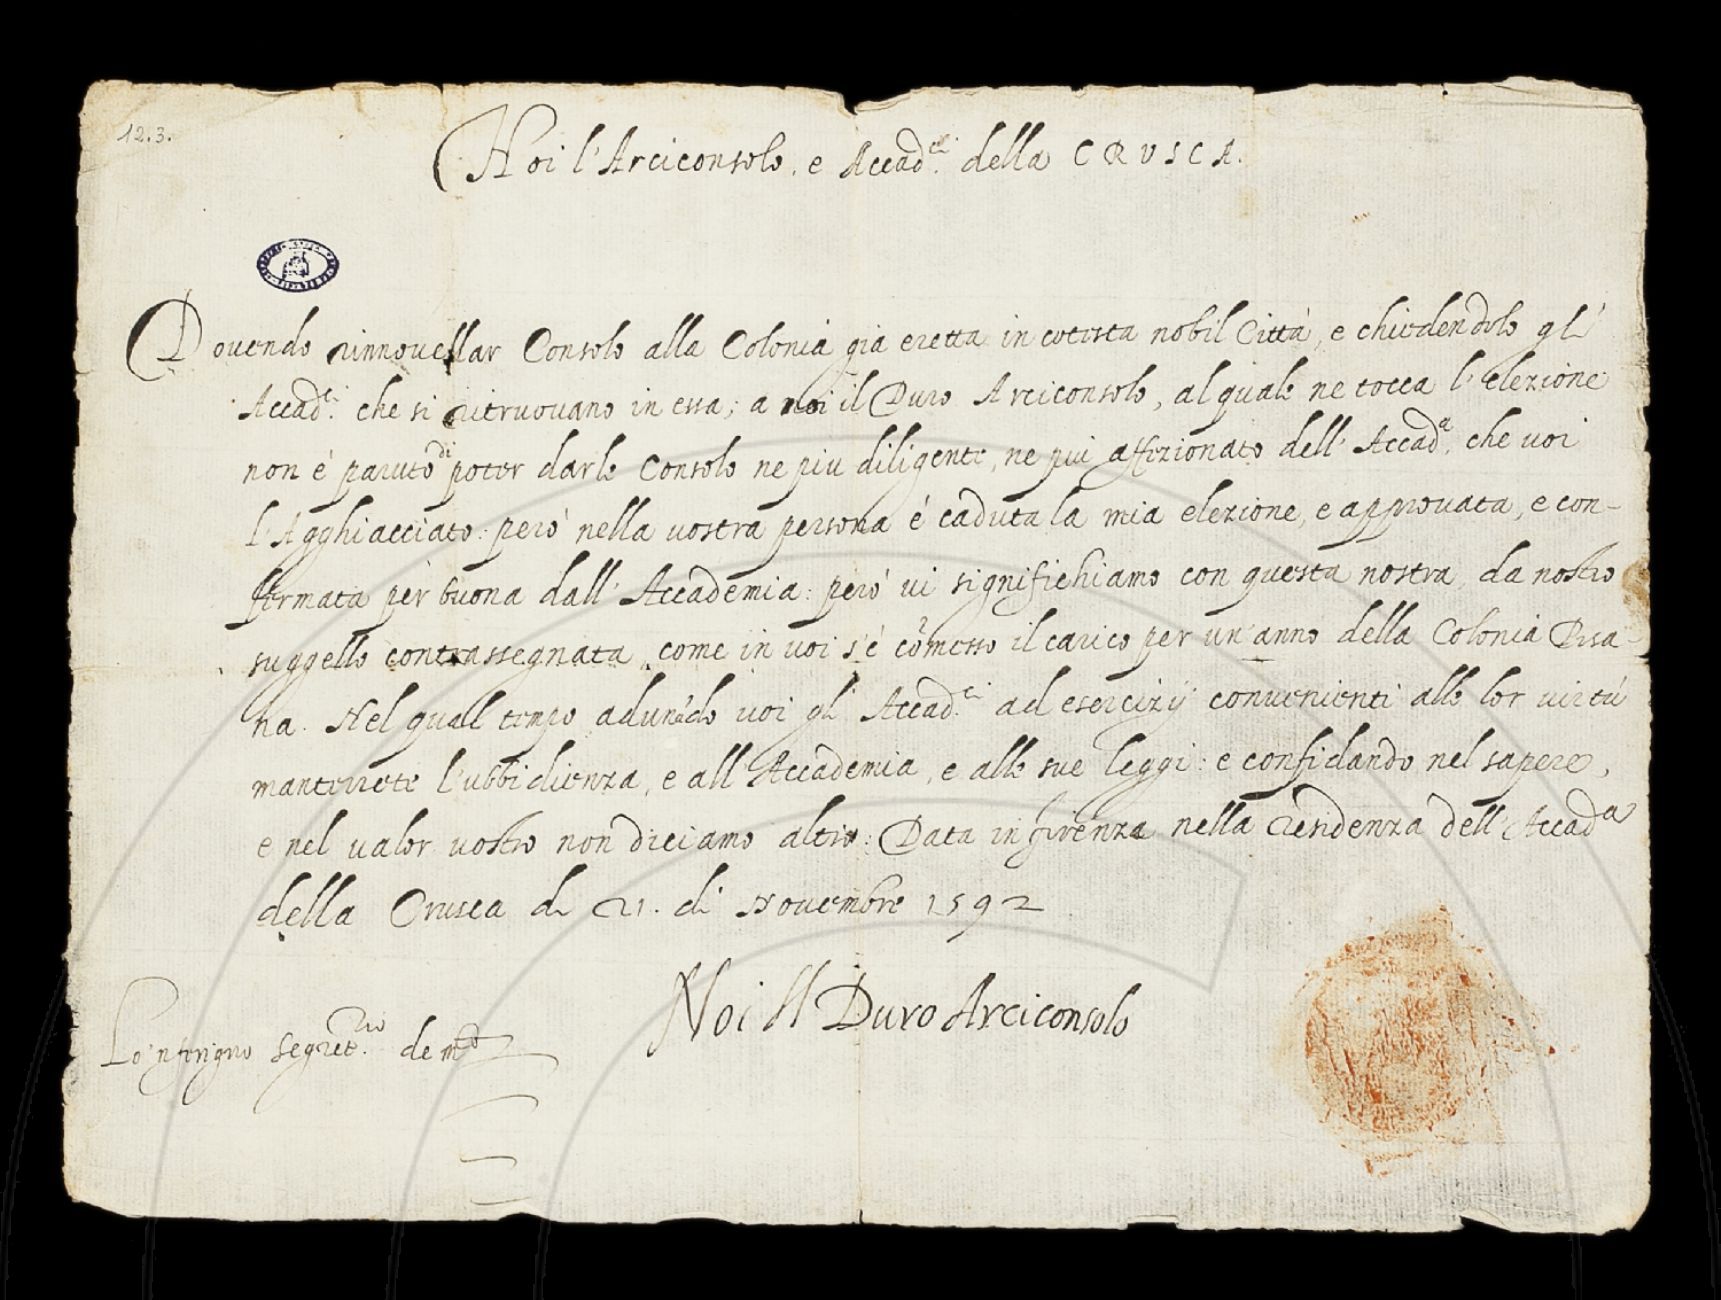 12.3.
Noi l'Arciconsolo, e Accad.ci della CRVSCA.
Dovendo rinnovellar Consolo alla Colonia già eretta in cotesta nobil Città, e chiedendolo gli
Accad.ci che si ritruovano in essa; a noi il Duro Arciconsolo, al quale ne tocca l'elezione
non è paruto di poter darle Consolo ne piu diligente, ne piu affezionato dell'Accad.a, che voi
l'Agghiacciato: però nella vostra persona è caduta la mia elezione, e approvata, e con-
fermata per buona dall'Accademia: però vi significhiamo con questa nostra, da nostro
suggello contrassegnata, come in voi s'è cõmesso il carico per un'anno della Colonia Pisa-
na. Nel qual tempo adunãdo voi gli Accad.ci ad esercizij convenienti alle lor virtù
manterrete l'ubbidienza, e all'Accademia, e alle sue leggi: e confidando nel sapere,
e nel valor vostro non diciamo altro: Data in firenza nella residenza dell'Accad.a
della Crusca di 21. di Novembre 1592
Noi Il Duro Arciconsolo
Lo'nferigno segret.rio de m.to